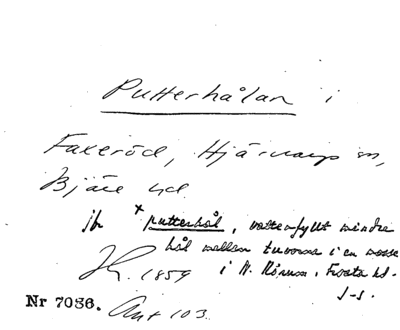 Putterhålan i
Faxeröd, Hjärnarps sn,
Bjäre hd.
jfr *putterhål, vattenfyllt mindre
hål mellan tuvorna i en mosse
i N. Rörum, Frosta hd.
1859 J-s.
Nr 7036. Ant 103